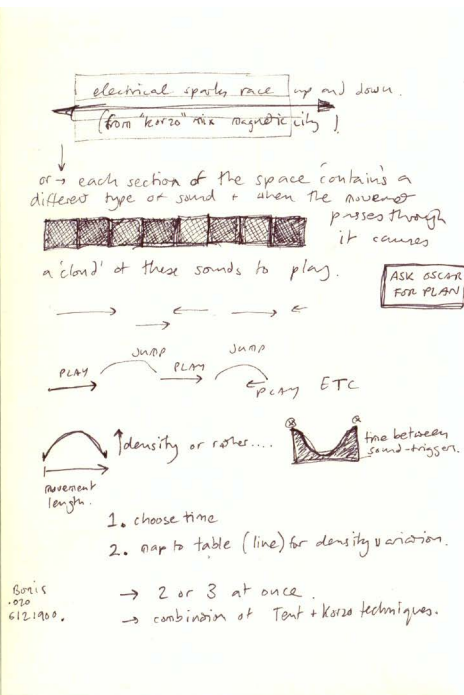 electrical sparks race up and down.
(from "Korzo" mix magnetic city)
or → each section of the space 'contains' a
different type of sound + when the movement
passes through
it causes
a 'cloud' of these sounds to play.
ASK OSCAR
FOR PLAN
JUMP JUMP
PLAY PLAY
PLAY ETC
density or rather....
time between
sound-trigger.
movement
length.
1. choose time
2. map to table (line) for density variation.
→ 2 or 3 at once.
→ combination of Tent + Korzo techniques.
Boris
.020
6121900.